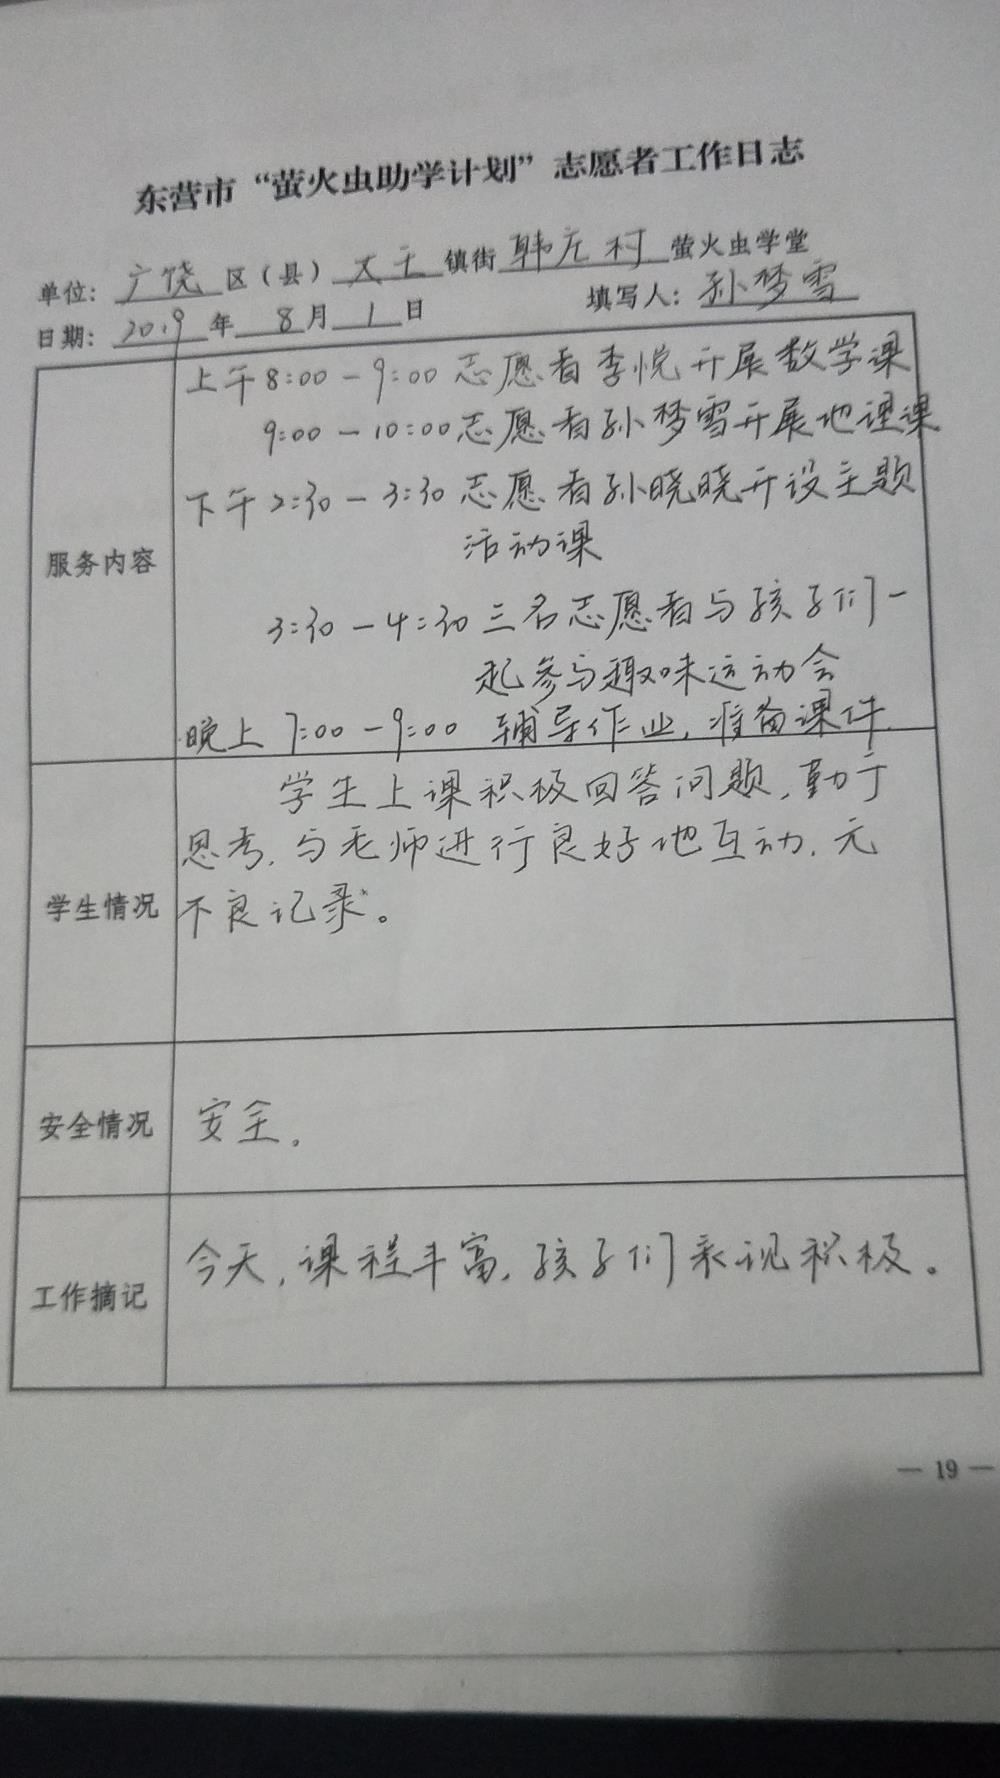 东营市“萤火虫助学计划”志愿者工作日志
单位：广饶区（县）大王镇街韩庄村萤火虫学堂
日期：2019年8月1日 填写人：孙梦雪
服务内容
上午8:00-9:00志愿者李悦开展数学课
9:00-10:00志愿者孙梦雪开展地理课
下午2:30-3:30志愿者孙晓晓开设主题
活动课
3:30-4:30三名志愿者与孩子们一
起参与趣味运动会
晚上7:00-9:00 辅导作业，准备课件.
学生情况
学生上课积极回答问题，勤于
思考，与老师进行良好地互动，无
不良记录。
安全情况
安全。
工作摘记
今天，课程丰富，孩子们表现积极。
— 19 —